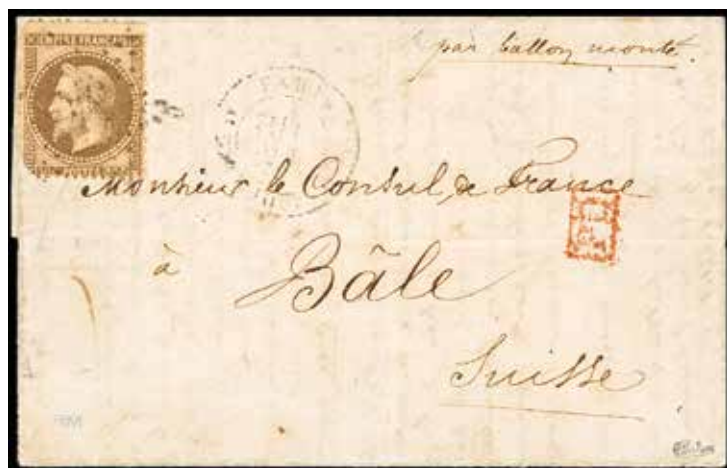 EMPIRE FRANÇAIS
par ballon monté.
PARIS
Monsieur le Consul de France
à
Bâle
Suisse